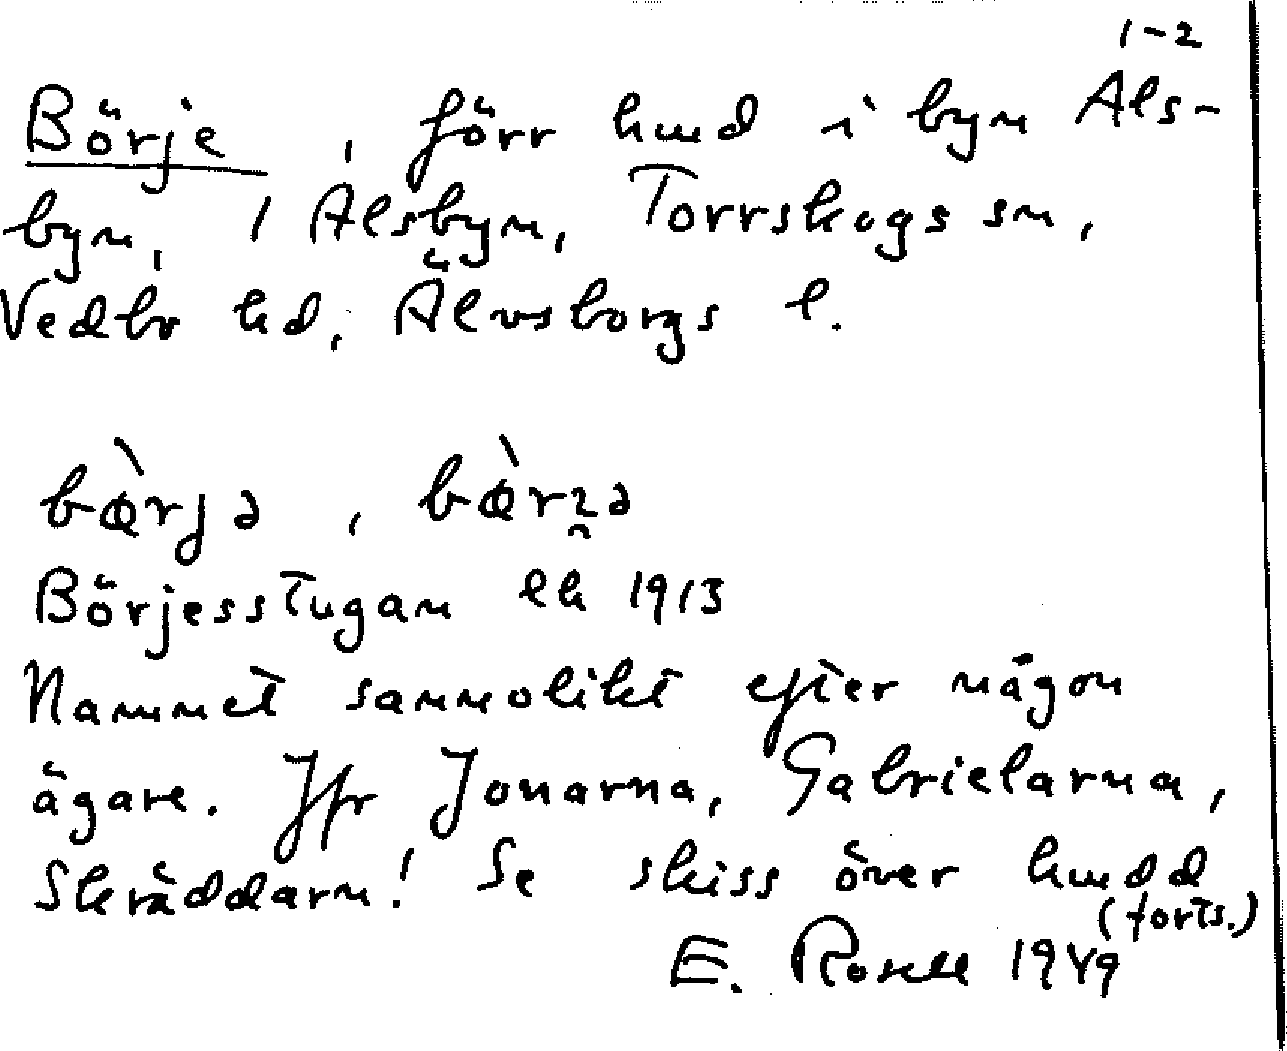 1-2
Börje, förr hmd i byn Åls-
byn, 1 Ålsbyn, Torrskogs sn,
Vedbo hd, Älvsborgs l.
bœ̀rjə, bœ̀rʓə
Börjesstugan ek 1913
Namnet sannolikt efter någon
ägare. Jfr Jonarna, Gabrielarna,
Skräddarn! Se skiss över hmdd
(forts.)
E. Rosell 1949